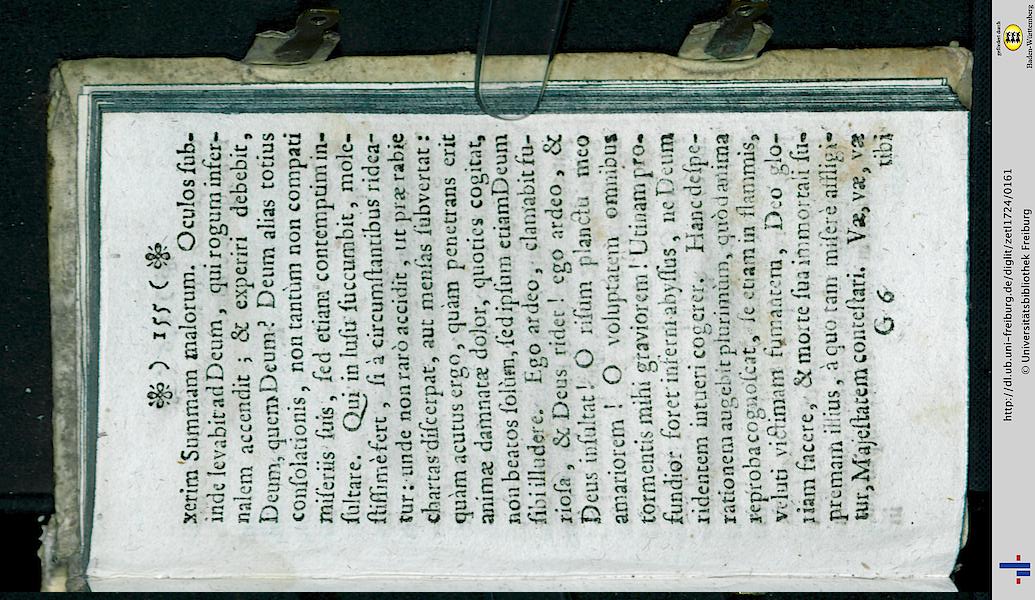 ❧ ) 155 ( ❧
xerim Summam malorum. Oculos ſub-
inde levabit ad Deum, qui rogum infer-
nalem accendit; & experiri debebit,
Deum, quem Deum? Deum alias totius
conſolationis, non tantùm non compati
miſeriis ſuis, ſed etiam contemptim in-
ſultare. Qui in luſu ſuccumbit, mole-
ſtiſſimè fert, ſi à circumſtantibus ridea-
tur: unde non rarò accidit, ut præ rabie
chartas diſcerpat, aut menſas ſubvertat:
quàm acutus ergo, quàm penetrans erit
animæ damnatæ dolor, quoties cogitat,
non beatos ſolùm, ſed ipſum etiam Deum
ſibi illudere. Ego ardeo, clamabit fu-
rioſa, & Deus ridet! ego ardeo, &
Deus inſultat! O riſum planctu meo
amariorem! O voluptatem omnibus
tormentis mihi graviorem! Utinam pro-
fundior foret inferni abyſſus, ne Deum
ridentem intueri cogerer. Hanc deſpe-
rationem augebit plurimùm, quòd anima
reproba cognoſcat, ſe etiam in flammis,
veluti victimam fumantem, Deo glo-
riam facere, & morte ſua immortali ſu-
premam illius, à quo tam miſerè affligi-
tur, Majeſtatem conteſtari. Væ, væ, væ
G 6 tibi
gefördert durch
Baden-Württemberg
http://dl.ub.uni-freiburg.de/diglit/zetl1724/0161
© Universitätsbibliothek Freiburg